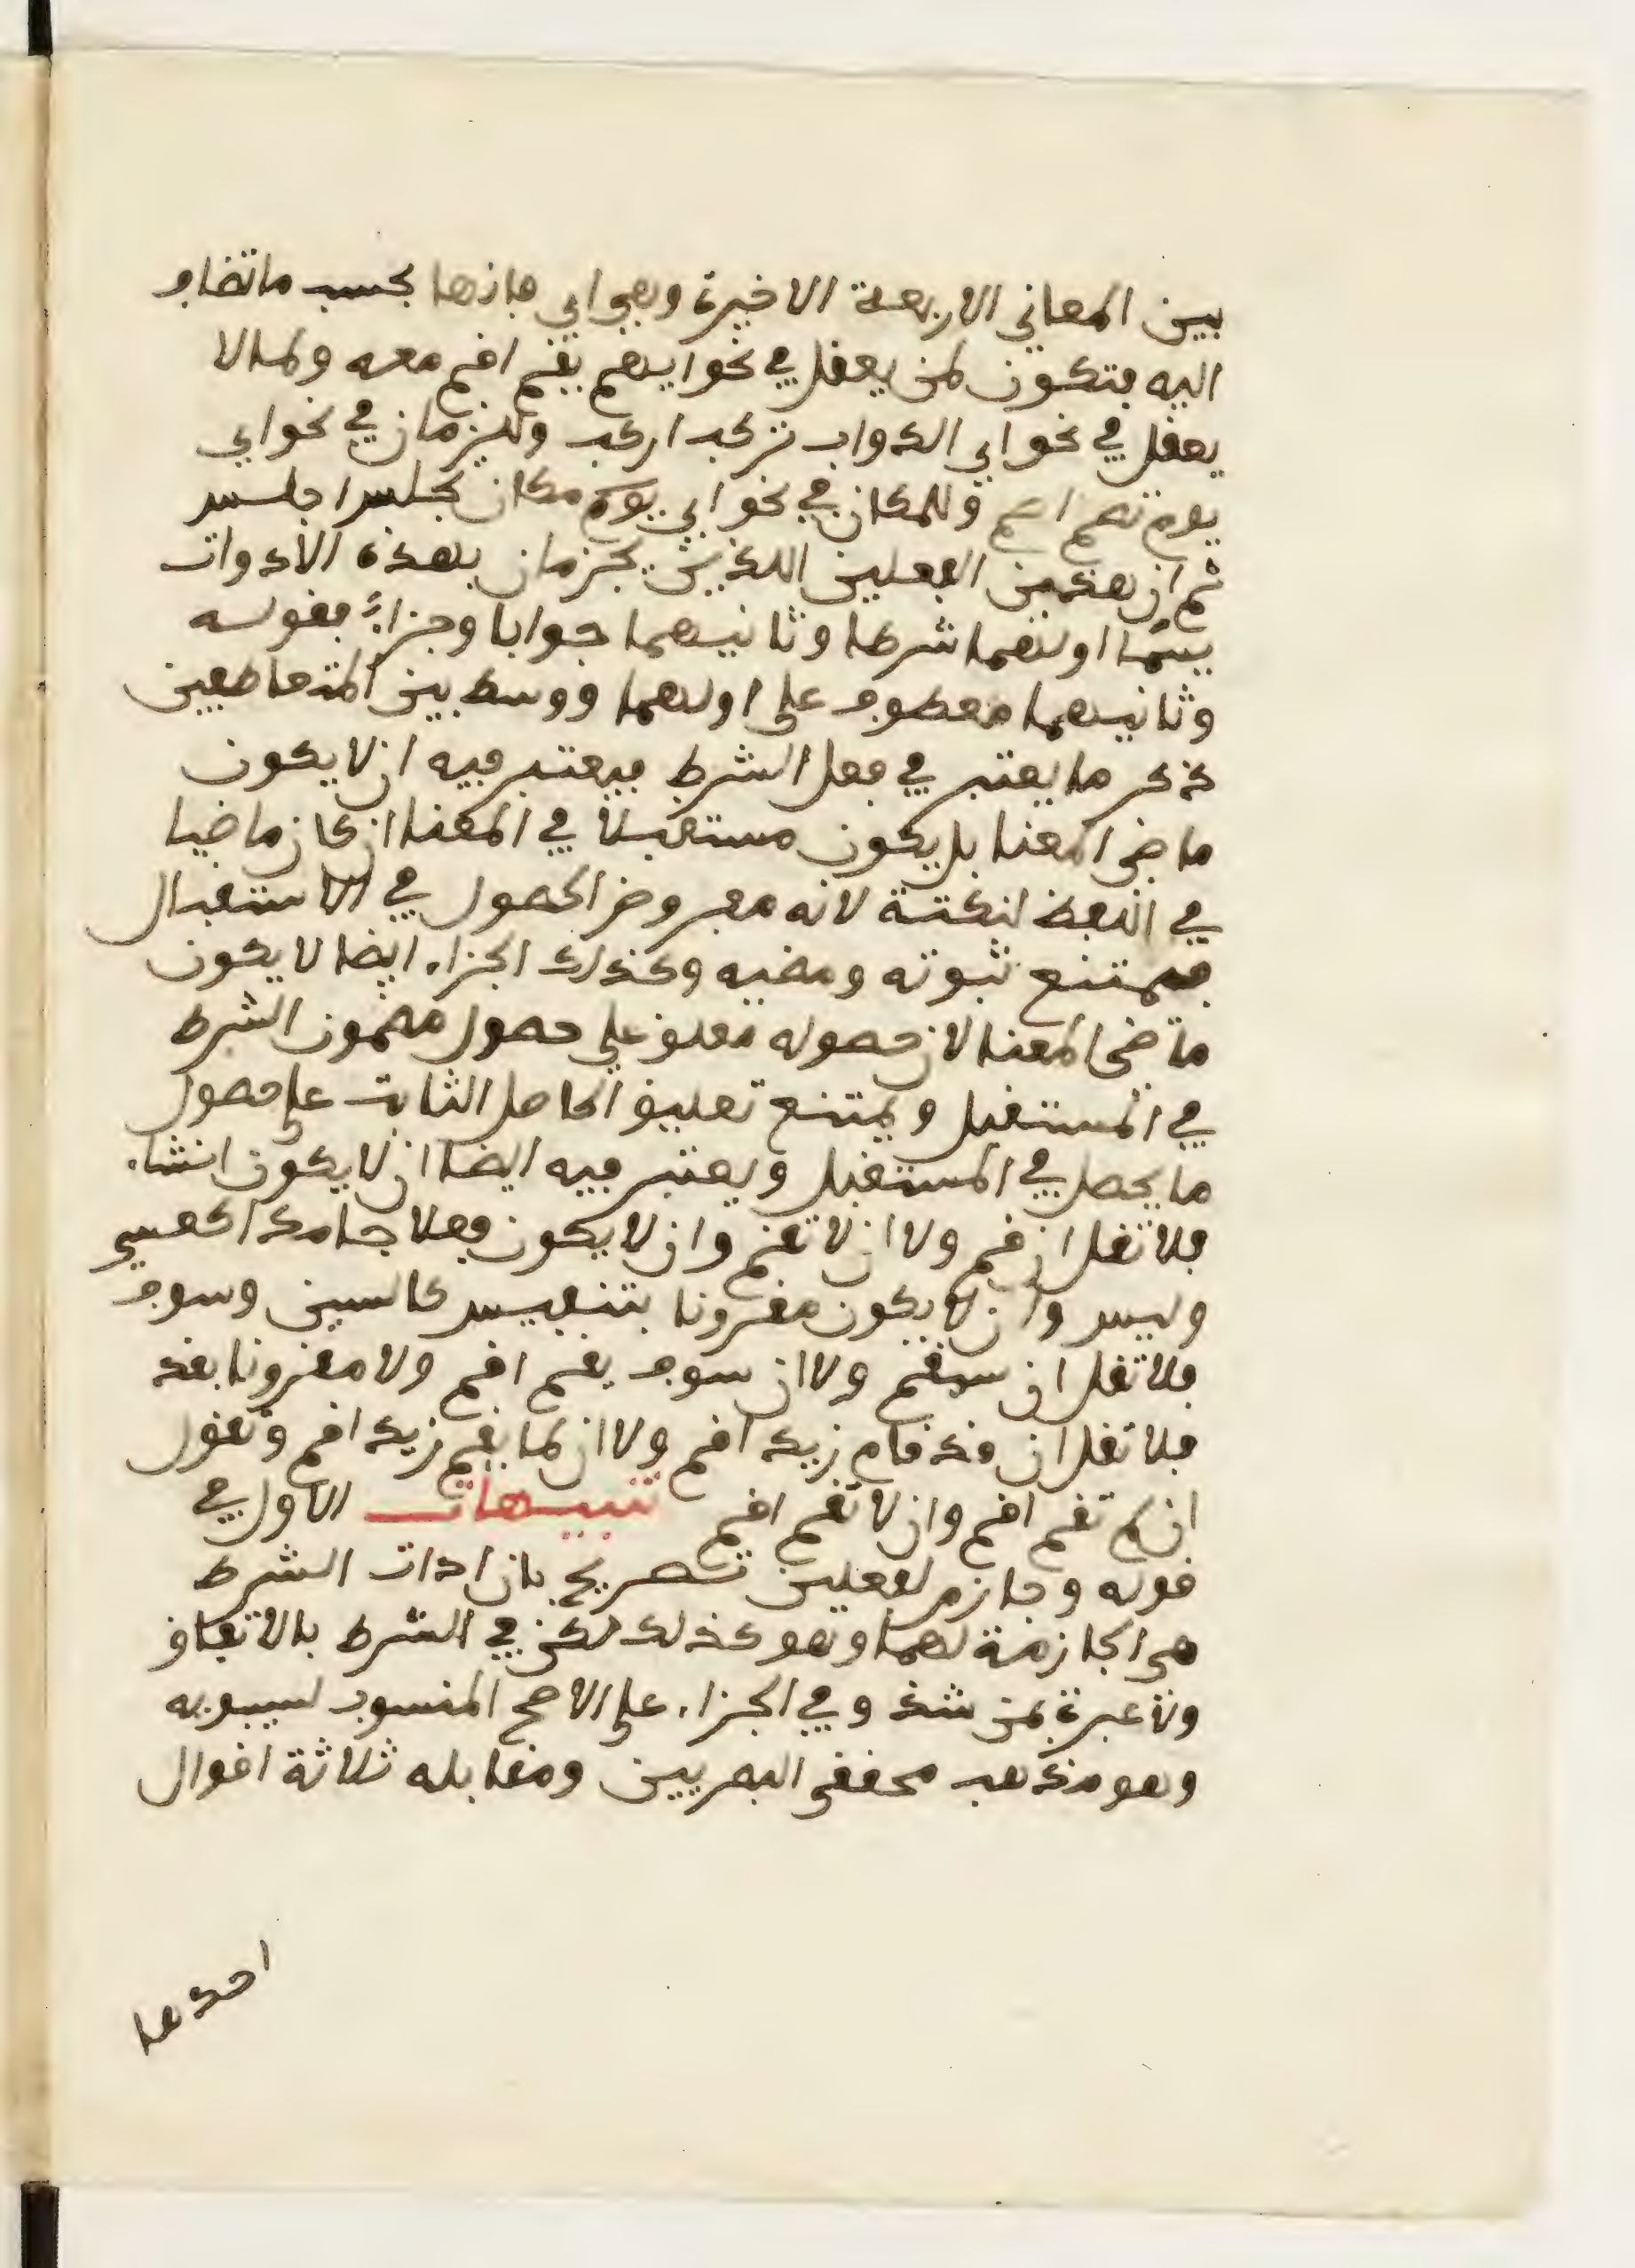 بين المعاني الاربعة الاخيرة وهي اي فانها بحسب ما تضاف
اليه فتكون لمن يعقل في نحو ايهم يقم اقم معه ولما لا
يعقل في نحو اي الدواب تركب اركب وللزمان في نحو اي
يوم تصم اصم وللمكان في نحو اي مكان تجلس اجلس
ثم ان هذين الفعلين اللذين يجزمان بهذه الادوات
يسمى اولهما شرطا وثانيهما جوابا وجزاءً فقوله
وثانيهما معطوف على اولهما ووسط بين المتعاطفين
ذكر ما يعتبر في فعل الشرط فيعتبر فيه ان لا يكون
ماضي المعنا بل يكون مستقبلا في المعنا ان كان ماضيا
في اللفظ لنكتة لانه مفروض الحصول في الاستقبال
فيمتنع ثبوته ومضيه وكذلك الجزاء ايضا لا يكون
ماضي المعنا لان حصوله معلق على حصول مضمون الشرط
في المستقبل ويمتنع تعليق الحاصل الثابت على حصول
ما يحصل في المستقبل ويعتبر فيه ايضا ان لا يكون انشاء
فلا تقل ان قم ولا ان لا تقم وان لا يكون فعلا جامدا كعسى
وليس وان لا يكون مقرونا بتنفيس كالسين وسوف
فلا تقل ان سيقم ولا ان سوف يقم اقم ولا مقرونا بقد
فلا تقل ان قد قام زيد اقم ولا ان لما يقم زيد اقم وتقول
ان لم تقم اقم وان لا تقم اقم تنبيهات الاول في
قوله وجازم لفعلين تصريح بان ادات الشرط
هي الجازمة لهما وهو كذلك لكن في الشرط بالاتفاق
ولا عبرة بمن شذ وفي الجزاء على الاصح المنسوب لسيبويه
وهو مذهب محققي البصريين ومقابله ثلاثة اقوال
احدها